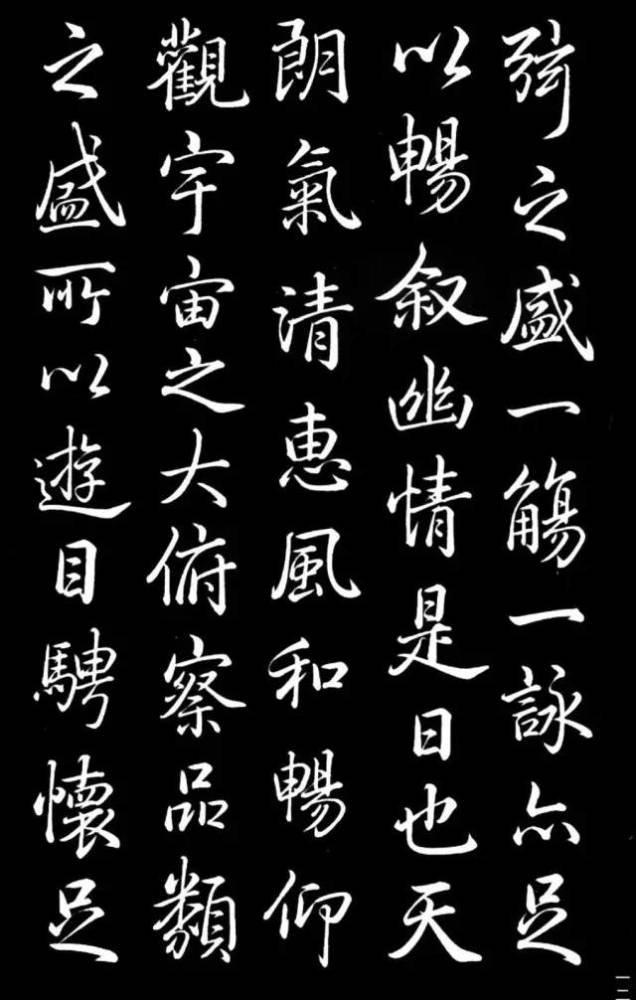 弦之盛一觴一詠亦足
以暢叙幽情是日也天
朗氣清惠風和暢仰
觀宇宙之大俯察品類
之盛所以遊目騁懷足
二